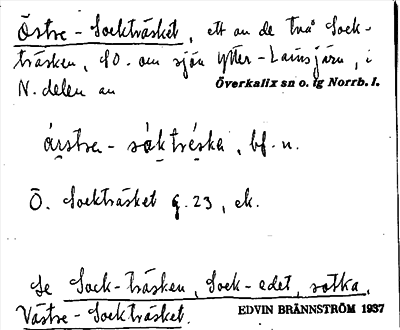 Östre-Sockträsket, ett av de två Sock-
träsken, SO. om sjön Ytter-Lainsjärv, i
N. delen av Överkalix sn o. tg Norrb. l.
årstre- såkträske, bf. n.
Ö. Sockträsket g. 23, ek.
Se Sock-träsken, Sock-edet, sotka,
Västre-Sockträsket. EDVIN BRÄNNSTRÖM 1937